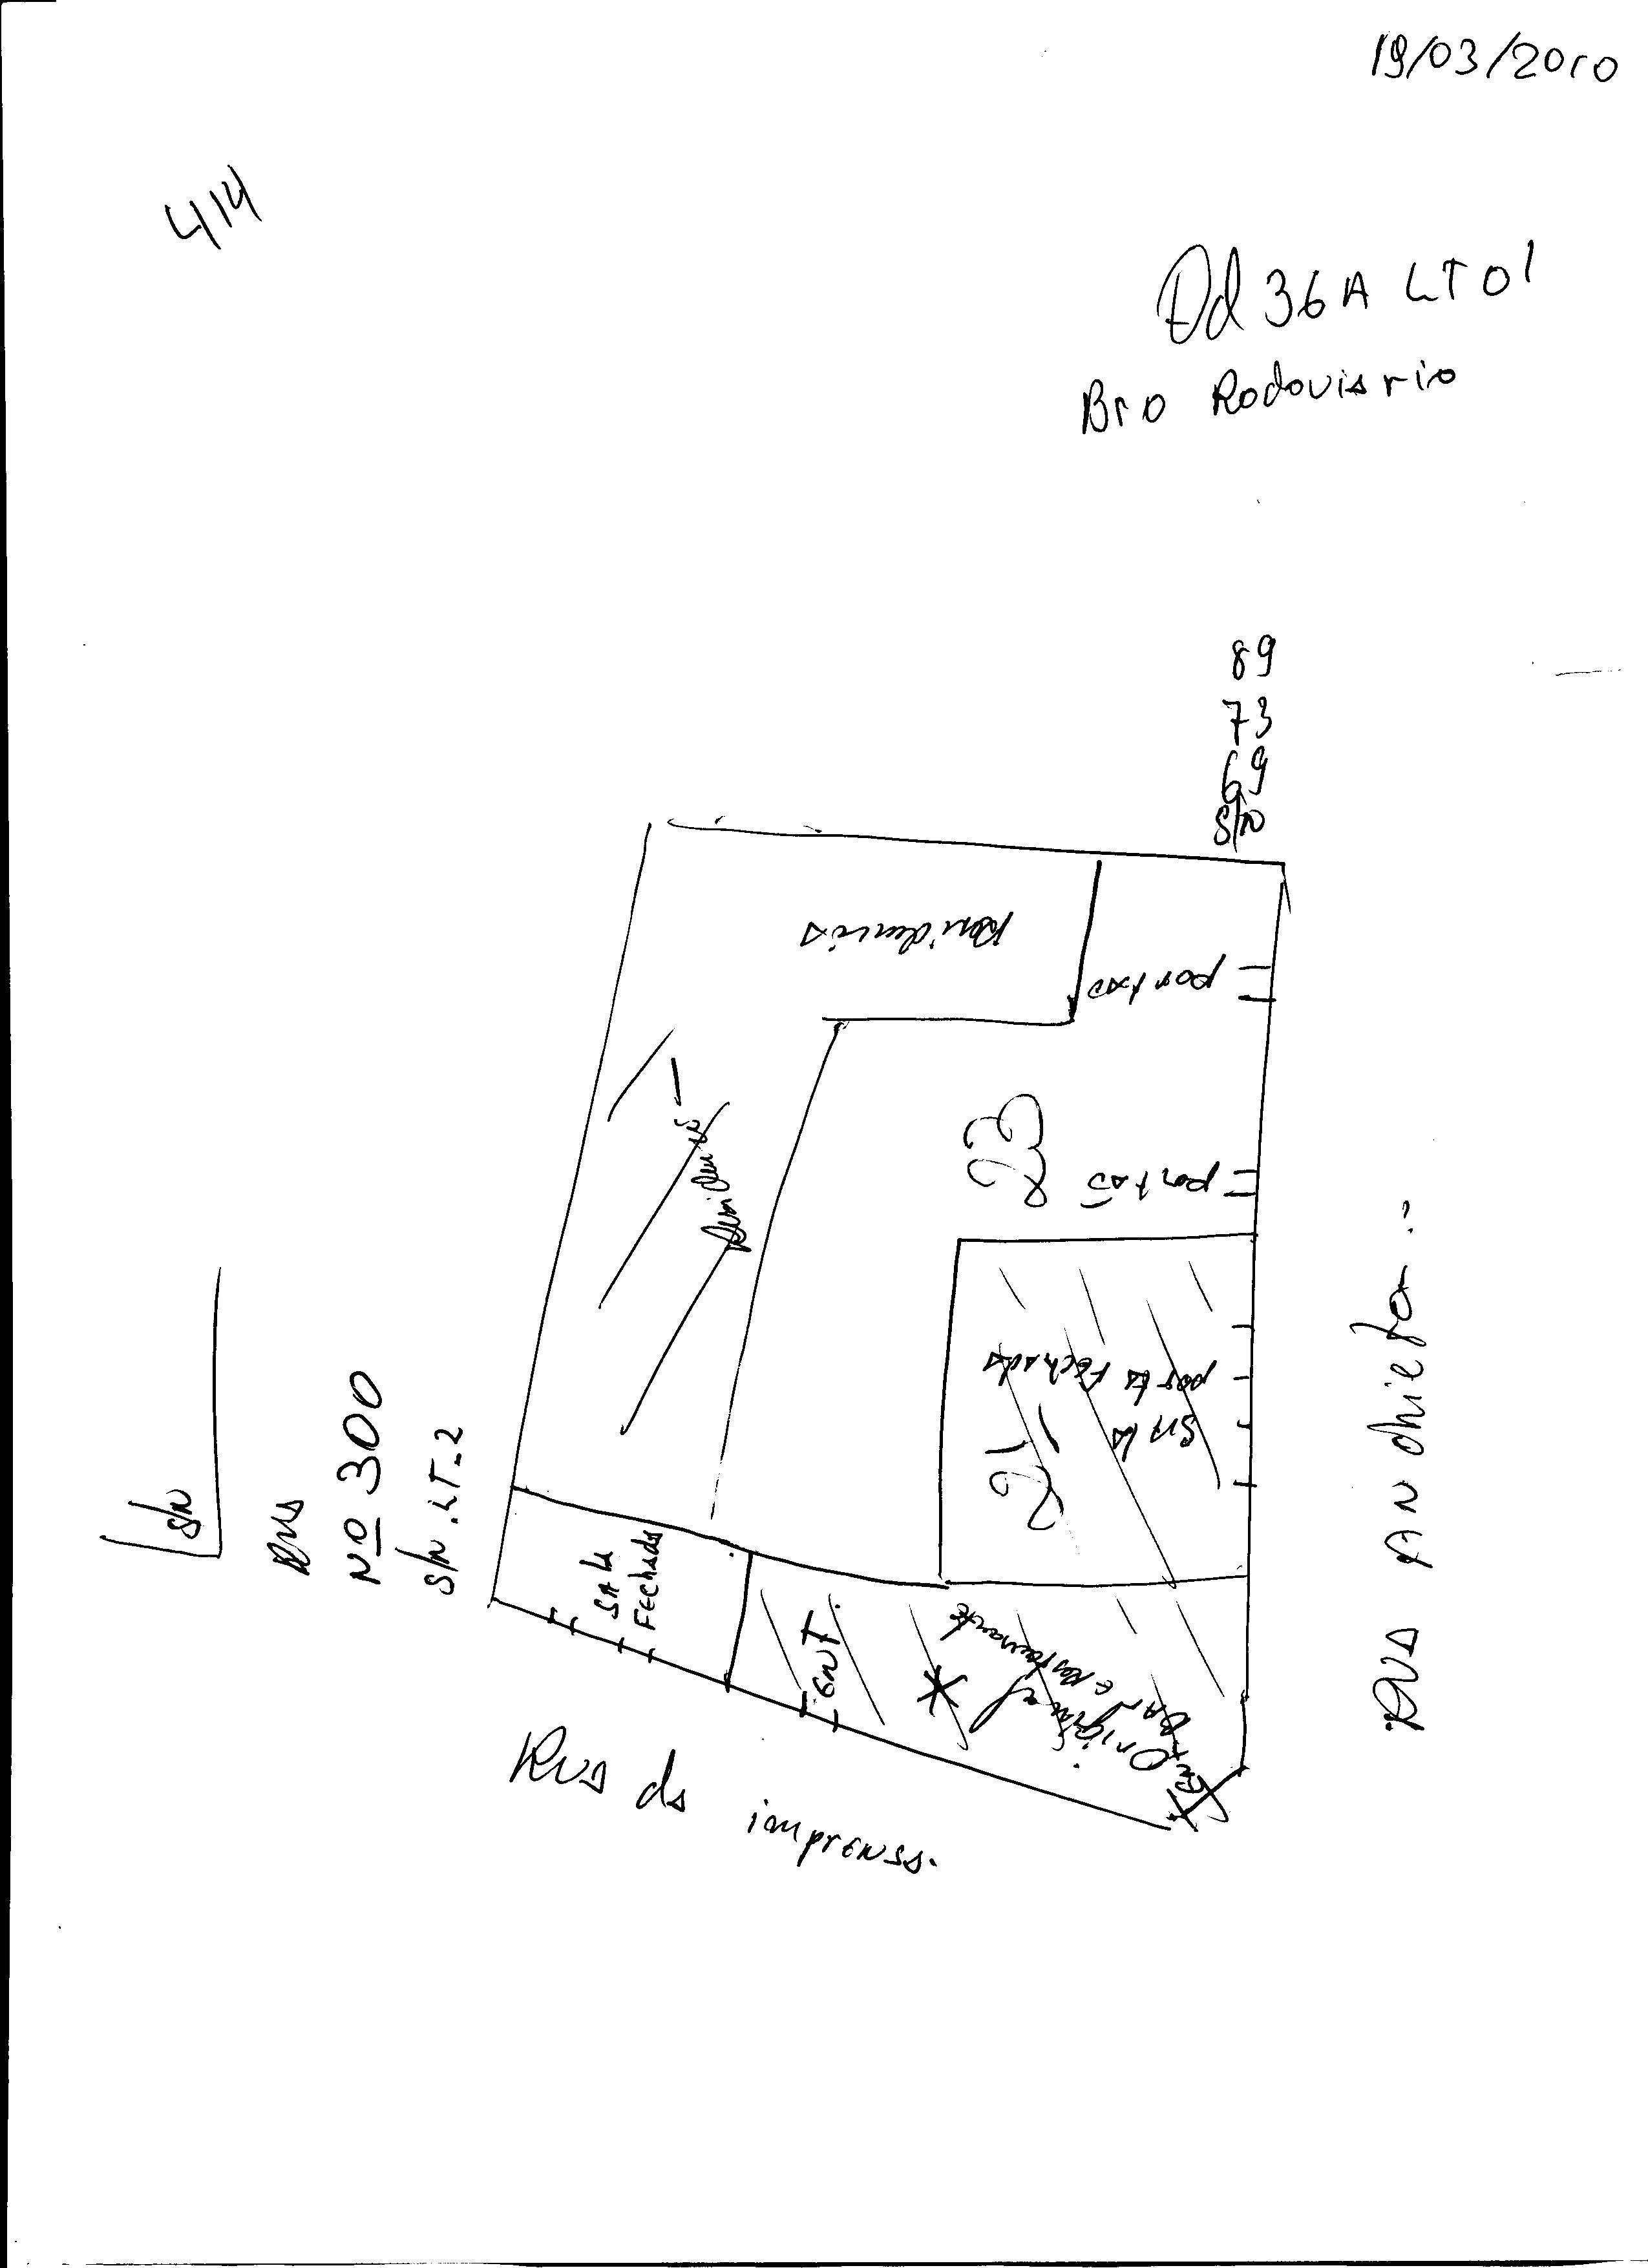 19/03/2010
414
Qd 36A LT 01
Bro Rodoviario
89
73
69
S/N
Residencia
portão
Residencia
23
portão
porta Fechada
Sala
21
S/N
Rua
Nº 300
S/N . LT - 2
Sala
Fechada
ENT.
Original
Bar e Restaurante
Ent
Rua Anchieta
Rua da imprensa.